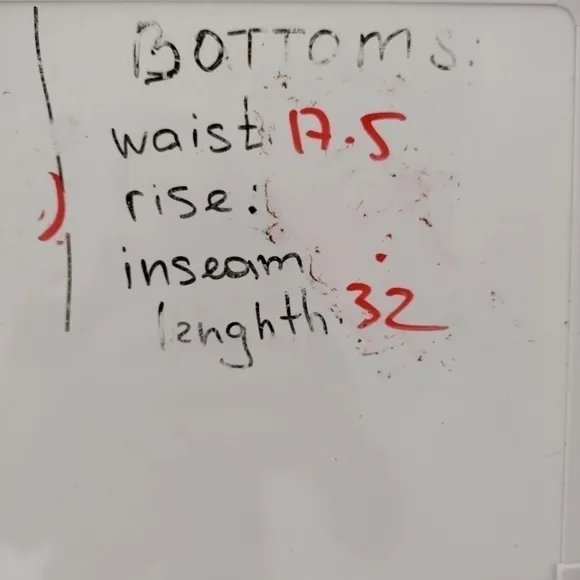 BOTTOMS:
waist: 17.5
rise:
inseam
lenghth: 32